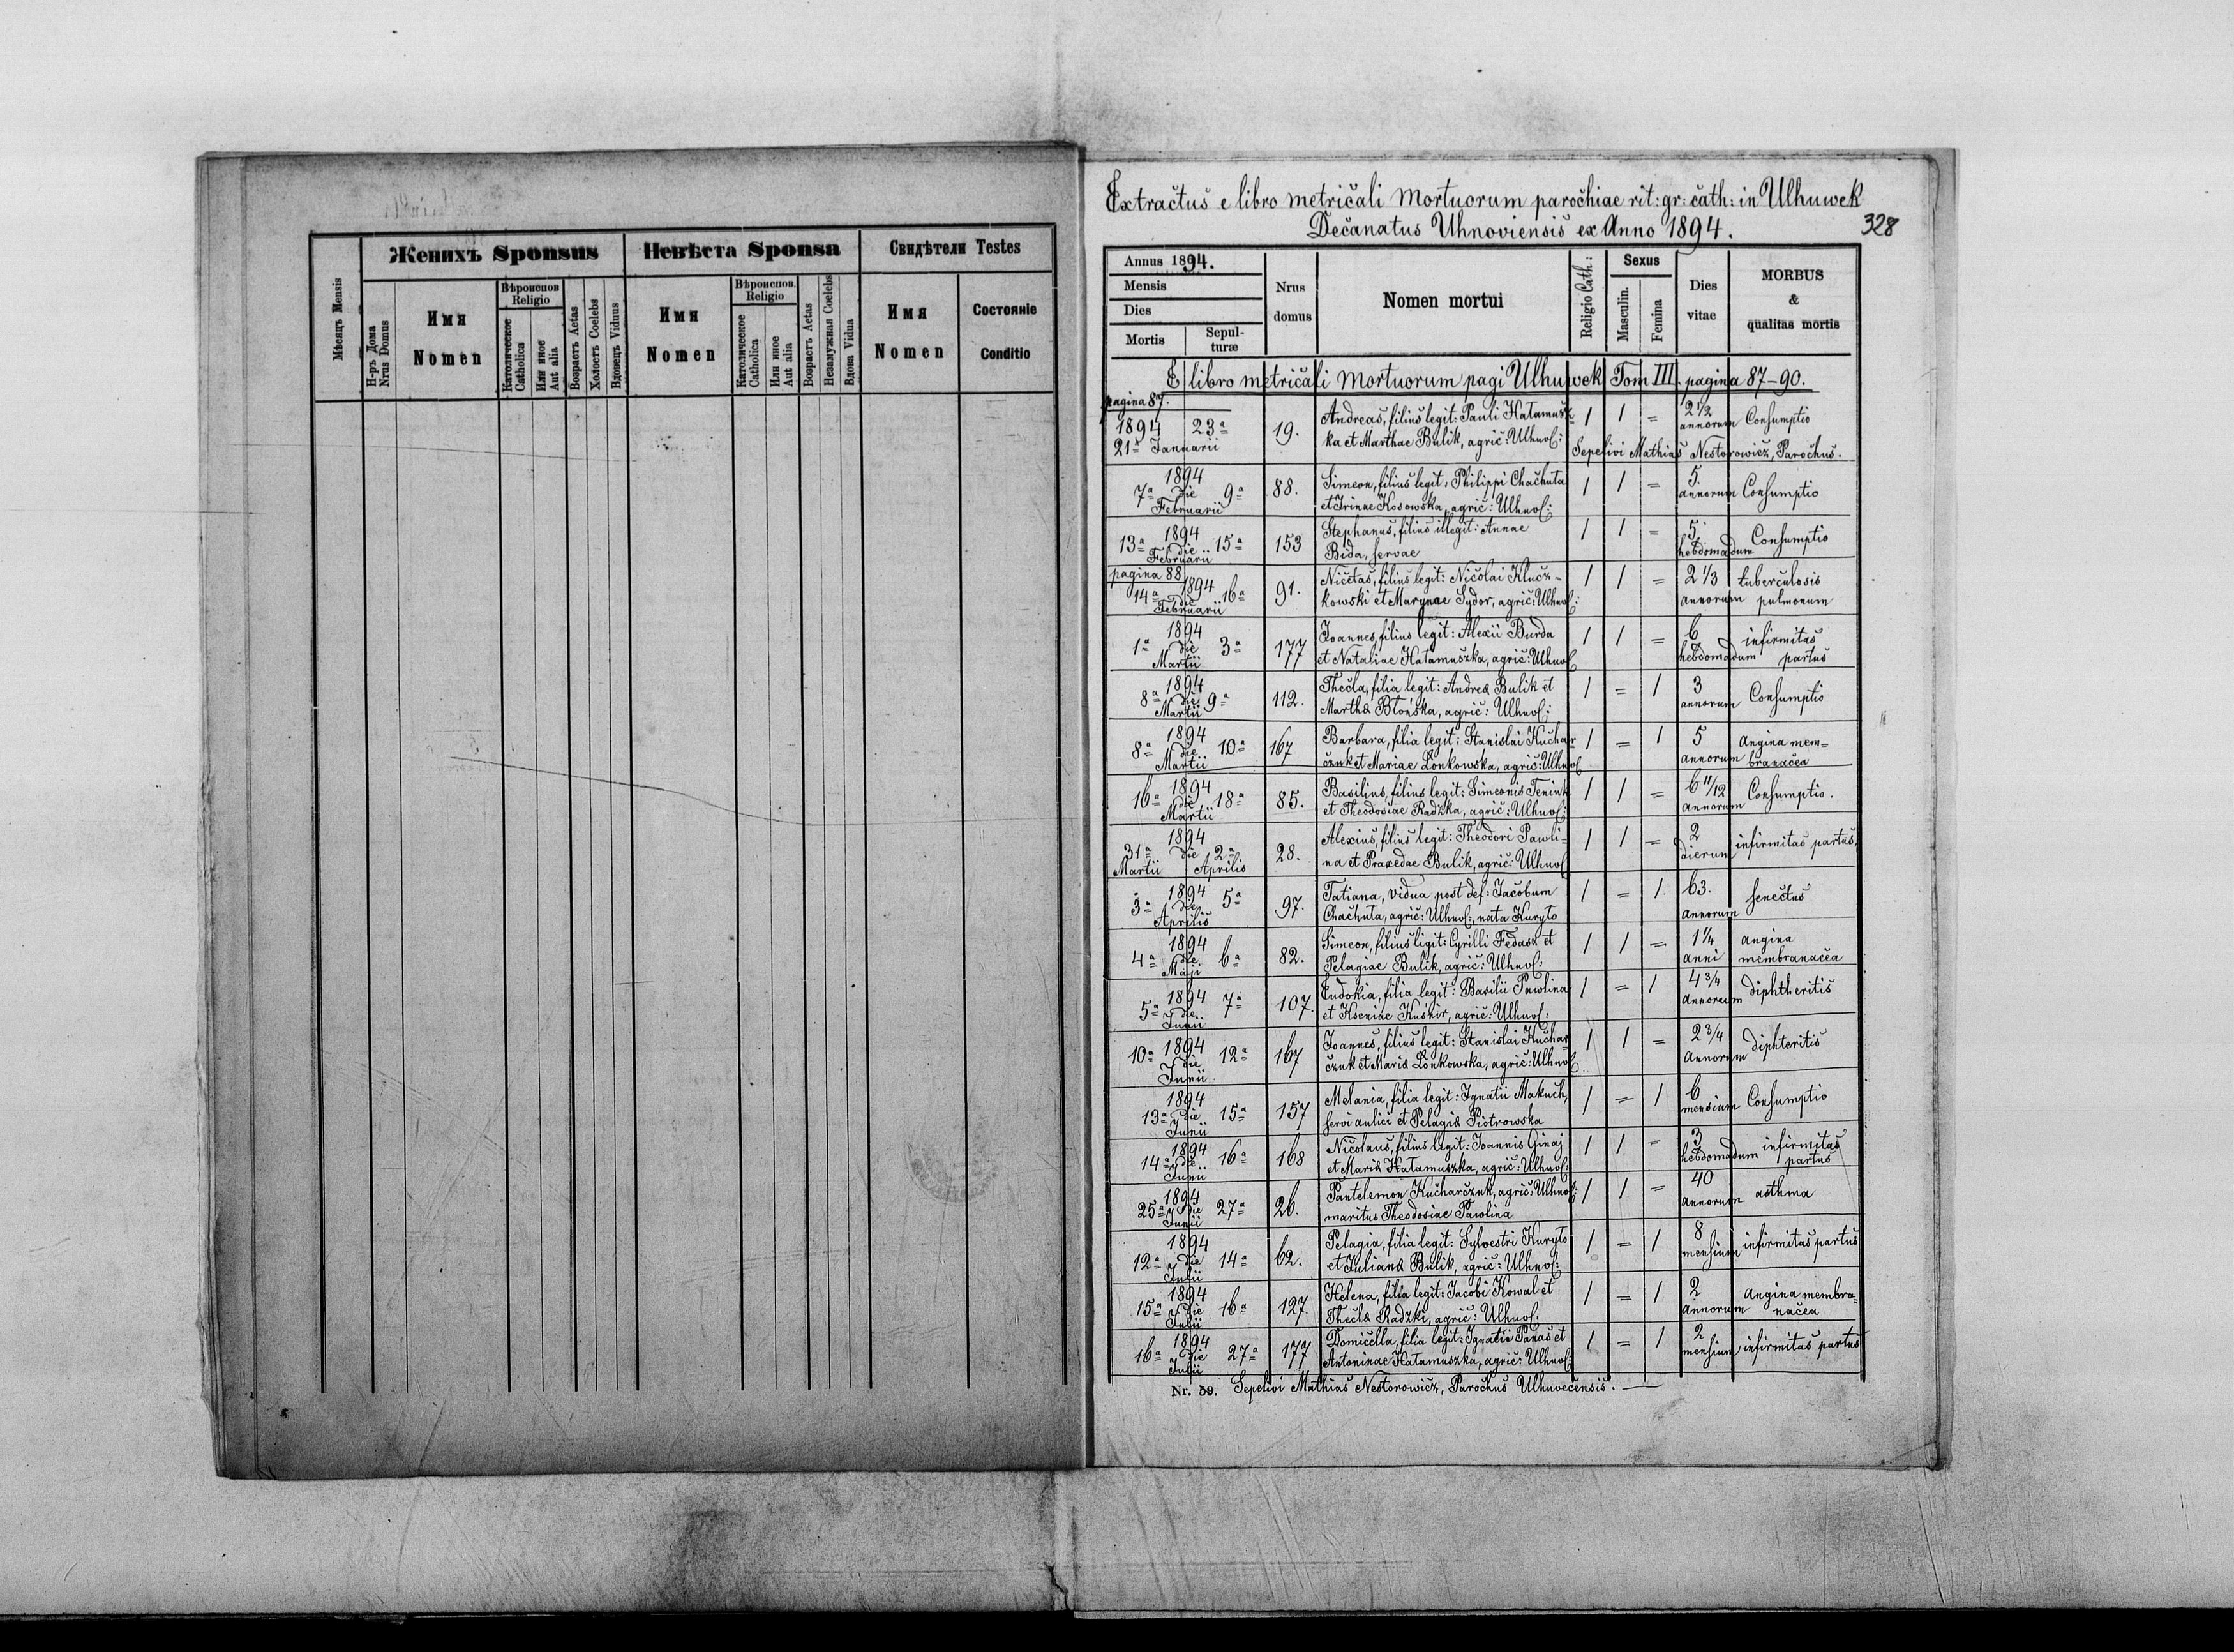 Женихъ Sponsus
Невѣста Sponsa
Свидѣтели Testes
Мѣсяцъ Mensis
Н-ръ Дома
Nrus Domus
Имя
Nomen
Вѣроиспов.
Religio
Католическое
Catholica
Или иное
Aut alia
Возрастъ Aetas
Холостъ Coelebs
Вдовецъ Viduus
Имя
Nomen
Вѣроиспов.
Religio
Католическое
Catholica
Или иное
Aut alia
Возрастъ Aetas
Незамужная Coelebs
Вдова Vidua
Имя
Nomen
Состоянiе
Conditio
Extractus e libro metricali Mortuorum parochiae rit: gr: cath: in Ulhuwek
Decanatus Uhnoviensis ex Anno 1894.
328
Annus 1894.
Mensis
Dies
Mortis
Sepul-
turæ
Nrus
domus
Nomen mortui
Religio Cath:
Sexus
Masculin.
Femina
Dies
vitae
MORBUS
&
qualitas mortis
E libro metricali Mortuorum pagi Ulhuwek Tom III. pagina 87-90.
pagina 87.
1894 23a 19. Andreas, filius legit: Pauli Hałamusz- 1 1 = 2 1/2 annorum Consumptio
21a Januarii ka et Marthae Bulik, agric: Ulhuv: Sepelivi Mathias Nestorowicz, Parochus.
1894
7a die 9a 88. Simeon, filius legit: Philippi Chachuta 1 1 = 5. annorum Consumptio
Februarii et Irinae Kosowska, agric: Ulhuv:
1894
13a die 15a 153 Stephanus, filius illegit: Annae 1 1 = 5. hebdomadum Consumptio
Februarii Bida, servae
pagina 88
1894
14a die 16a 91. Nicetas, filius legit: Nicolai Klucz- 1 1 = 2 1/3 tuberculosis
Februarii kowski et Marynae Sydor, agric: Ulhuv: annorum pulmonum
1894
1a die 3a 177 Joannes, filius legit: Alexii Burda 1 1 = 6 infirmitas
Martii et Nataliae Hałamuszka, agric: Ulhuv: hebdomadum partus
1894
8a die 9a 112. Thecla, filia legit: Andreæ Bulik et 1 = 1 3 annorum Consumptio
Martii Marthæ Błońska, agric: Ulhuv:
1894
8a die 10a 167 Barbara, filia legit: Stanislai Kuchar- 1 = 1 5 Angina mem=
Martii czuk et Mariae Lonkowska, agric: Ulhuv: annorum branacea
1894
16a die 18a 85. Basilius, filius legit: Simeonis Teniuk 1 1 = 6 11/12 annorum Consumptio.
Martii et Theodosiae Radzka, agric: Ulhuv:
1894
31a die 2a 28. Alexius, filius legit: Theodori Pawli- 1 1 = 2 dierum infirmitas partus,
Martii Aprilis na et Praxedae Bulik, agric: Ulhuv:
1894
3a die 5a 97. Tatiana, vidua post def: Jacobum 1 = 1. 63. annorum senectus
Aprilis Chachuta, agric: Ulhuv:, nata Kuryło
1894
4a die 6a 82. Simeon, filius ligit: Cyrilli Fedasz et 1 1 = 1 1/4 angina
Maji Pelagiae Bulik, agric: Ulhuv: anni membranacea
1894
5a die 7a 107. Eudokia, filia legit: Basilii Pawlina 1 = 1 4 3/4 annorum diphtheritis
Junii et Kseniae Kuśnir, agric: Ulhuv:
1894
10a die 12a 167 Joannes, filius legit: Stanislai Kuchar- 1 1 = 2 3/4 annorum diphteritis
Junii czuk et Mariæ Lonkowska, agric: Ulhuv:
1894
13a die 15a 157 Melania, filia legit: Ignatii Makuch, 1 = 1 6 mensium Consumptio
Junii servi aulici et Pelagiæ Piotrowska
1894
14a die 16a 168 Nicolaus, filius legit: Joannis Ginaj 1 1 = 3 infirmitas
Junii et Mariæ Hałamuszka, agric: Ulhuv: hebdomadum partus
1894
25a die 27a 26. Pantelemon Kucharczuk, agric: Ulhuv: 1 1 = 40 annorum asthma
Junii maritus Theodosiae Pawlina
1894
12a die 14a 62. Pelagia, filia legit: Sylvestri Kuryło 1 = 1 8 mensium infirmitas partus
Julii et Julianæ Bulik, agric: Ulhuv:
1894
15a die 16a 127. Helena, filia legit: Jacobi Kowal et 1 = 1 2 Angina membra=
Julii Theclæ Radzki, agric: Ulhuv: annorum nacea
1894
16a die 27a 177 Domicella, filia legit: Ignatii Panas et 1 = 1 2 mensium infirmitas partus
Julii Antoninae Hałamuszka, agric: Ulhuv:
Nr. 59. Sepelivi Mathias Nestorowicz, Parochus Ulhuvecensis.